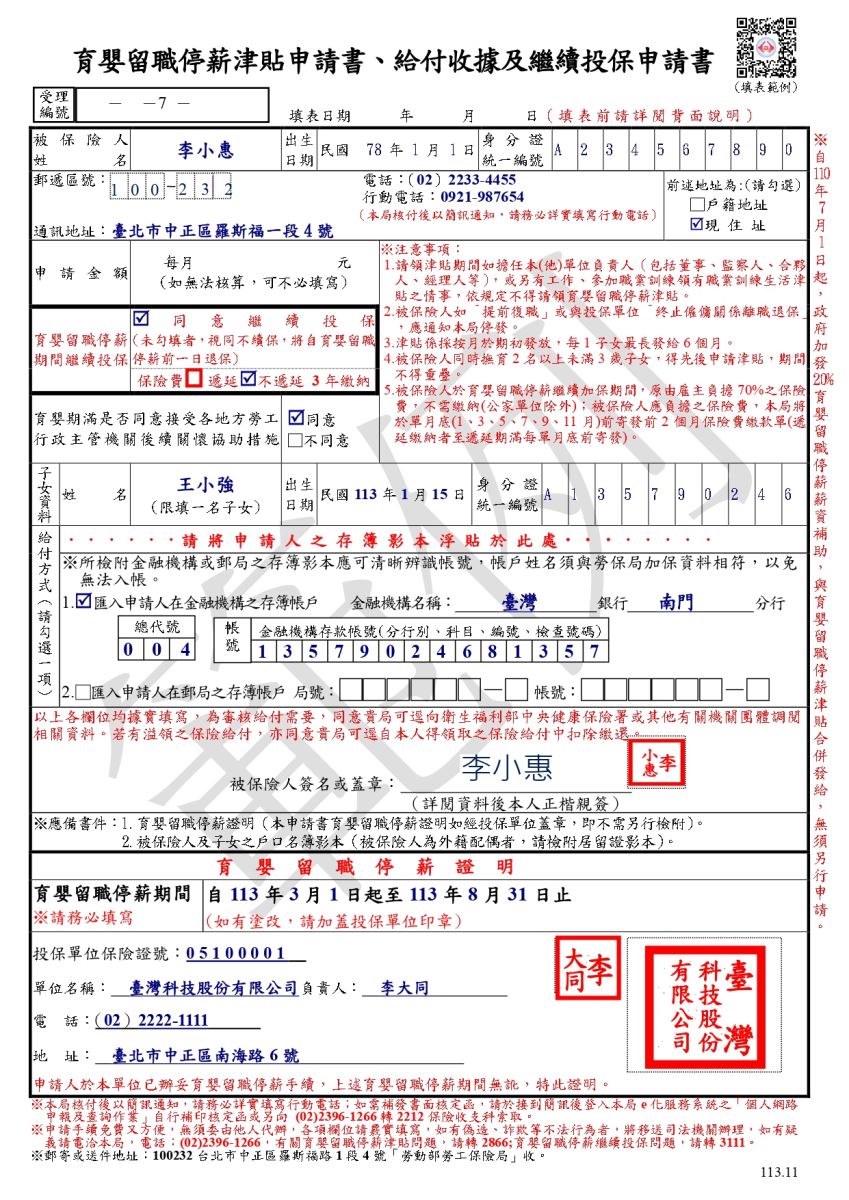 育嬰留職停薪津貼申請書、給付收據及繼續投保申請書
(填表範例)
受理編號 － －7－
填表日期 年 月 日(填表前請詳閱背面說明)
被保險人姓名 李小惠 出生日期 民國 78 年 1 月 1 日 身分證統一編號 A 2 3 4 5 6 7 8 9 0
郵遞區號：1 0 0-2 3 2
電話：(02) 2233-4455
行動電話：0921-987654
(本局核付後以簡訊通知，請務必詳實填寫行動電話)
通訊地址：臺北市中正區羅斯福一段 4 號
前述地址為:(請勾選)
□戶籍地址
☑現 住 址
申請金額 每月 元
(如無法核算，可不必填寫)
育嬰留職停薪期間繼續投保
☑ 同意繼續投保
(未勾填者，視同不續保，將自育嬰留職停薪前一日退保)
保險費□遞延☑不遞延 3 年繳納
育嬰期滿是否同意接受各地方勞工行政主管機關後續關懷協助措施
☑同意
□不同意
※注意事項：
1.請領津貼期間如擔任本(他)單位負責人（包括董事、監察人、合夥
人、經理人等），或另有工作、參加職業訓練領有職業訓練生活津
貼之情事，依規定不得請領育嬰留職停薪津貼。
2.被保險人如「提前復職」或與投保單位「終止僱傭關係離職退保」
，應通知本局停發。
3.津貼係採按月於期初發放，每 1 子女最長發給 6 個月。
4.被保險人同時撫育 2 名以上未滿 3 歲子女，得先後申請津貼，期間
不得重疊。
5.被保險人於育嬰留職停薪繼續加保期間，原由雇主負擔 70%之保險
費，不需繳納(公家單位除外)；被保險人應負擔之保險費，本局將
於單月底(1、3、5、7、9、11 月)前寄發前 2 個月保險費繳款單(遞
延繳納者至遞延期滿每單月底前寄發)。
※自110年7月1日起，政府加發20%育嬰留職停薪薪資補助，與育嬰留職停薪津貼合併發給，無須另行申請。
子女資料 姓名 王小強
(限填一名子女)
出生日期 民國 113 年 1 月 15 日 身分證統一編號 A 1 3 5 7 9 0 2 4 6
給付方式（請勾選一項）
‧‧‧‧‧‧請將申請人之存簿影本浮貼於此處‧‧‧‧‧‧‧‧
※所檢附金融機構或郵局之存簿影本應可清晰辨識帳號，帳戶姓名須與勞保局加保資料相符，以免
無法入帳。
1.☑匯入申請人在金融機構之存簿帳戶 金融機構名稱： 臺灣 銀行 南門 分行
總代號
0 0 4
帳號 金融機構存款帳號(分行別、科目、編號、檢查號碼)
1 3 5 7 9 0 2 4 6 8 1 3 5 7
2.□匯入申請人在郵局之存簿帳戶 局號：□□□□□□—□ 帳號：□□□□□□—□
以上各欄位均據實填寫，為審核給付需要，同意貴局可逕向衛生福利部中央健康保險署或其他有關機關團體調閱
相關資料。若有溢領之保險給付，亦同意貴局可逕自本人得領取之保險給付中扣除繳還。
被保險人簽名或蓋章： 李小惠
李小惠
(詳閱資料後本人正楷親簽)
※應備書件：1. 育嬰留職停薪證明（本申請書育嬰留職停薪證明如經投保單位蓋章，即不需另行檢附）。
2. 被保險人及子女之戶口名簿影本（被保險人為外籍配偶者，請檢附居留證影本）。
育嬰留職停薪證明
育嬰留職停薪期間 自 113 年 3 月 1 日起至 113 年 8 月 31 日止
※請務必填寫 (如有塗改，請加蓋投保單位印章)
投保單位保險證號：0 5 1 0 0 0 0 1
單位名稱： 臺灣科技股份有限公司 負責人： 李大同
電 話：(02) 2222-1111
地 址： 臺北市中正區南海路 6 號
李大同
臺灣科技股份有限公司
申請人於本單位已辦妥育嬰留職停薪手續，上述育嬰留職停薪期間無訛，特此證明。
※本局核付後以簡訊通知，請務必詳實填寫行動電話；如需補發書面核定函，請於接到簡訊後登入本局 e 化服務系統之「個人網路
申報及查詢作業」自行補印核定函或另向 (02)2396-1266 轉 2212 保險收支科索取。
※申請手續免費又方便，無須委由他人代辦，各項欄位請覈實填寫，如有偽造、詐欺等不法行為者，將移送司法機關辦理，如有疑
義請電洽本局，電話：(02)2396-1266，有關育嬰留職停薪津貼問題，請轉 2866;育嬰留職停薪繼續投保問題，請轉 3111。
※郵寄或送件地址：100232 台北市中正區羅斯福路 1 段 4 號「勞動部勞工保險局」收。
113.11
範例